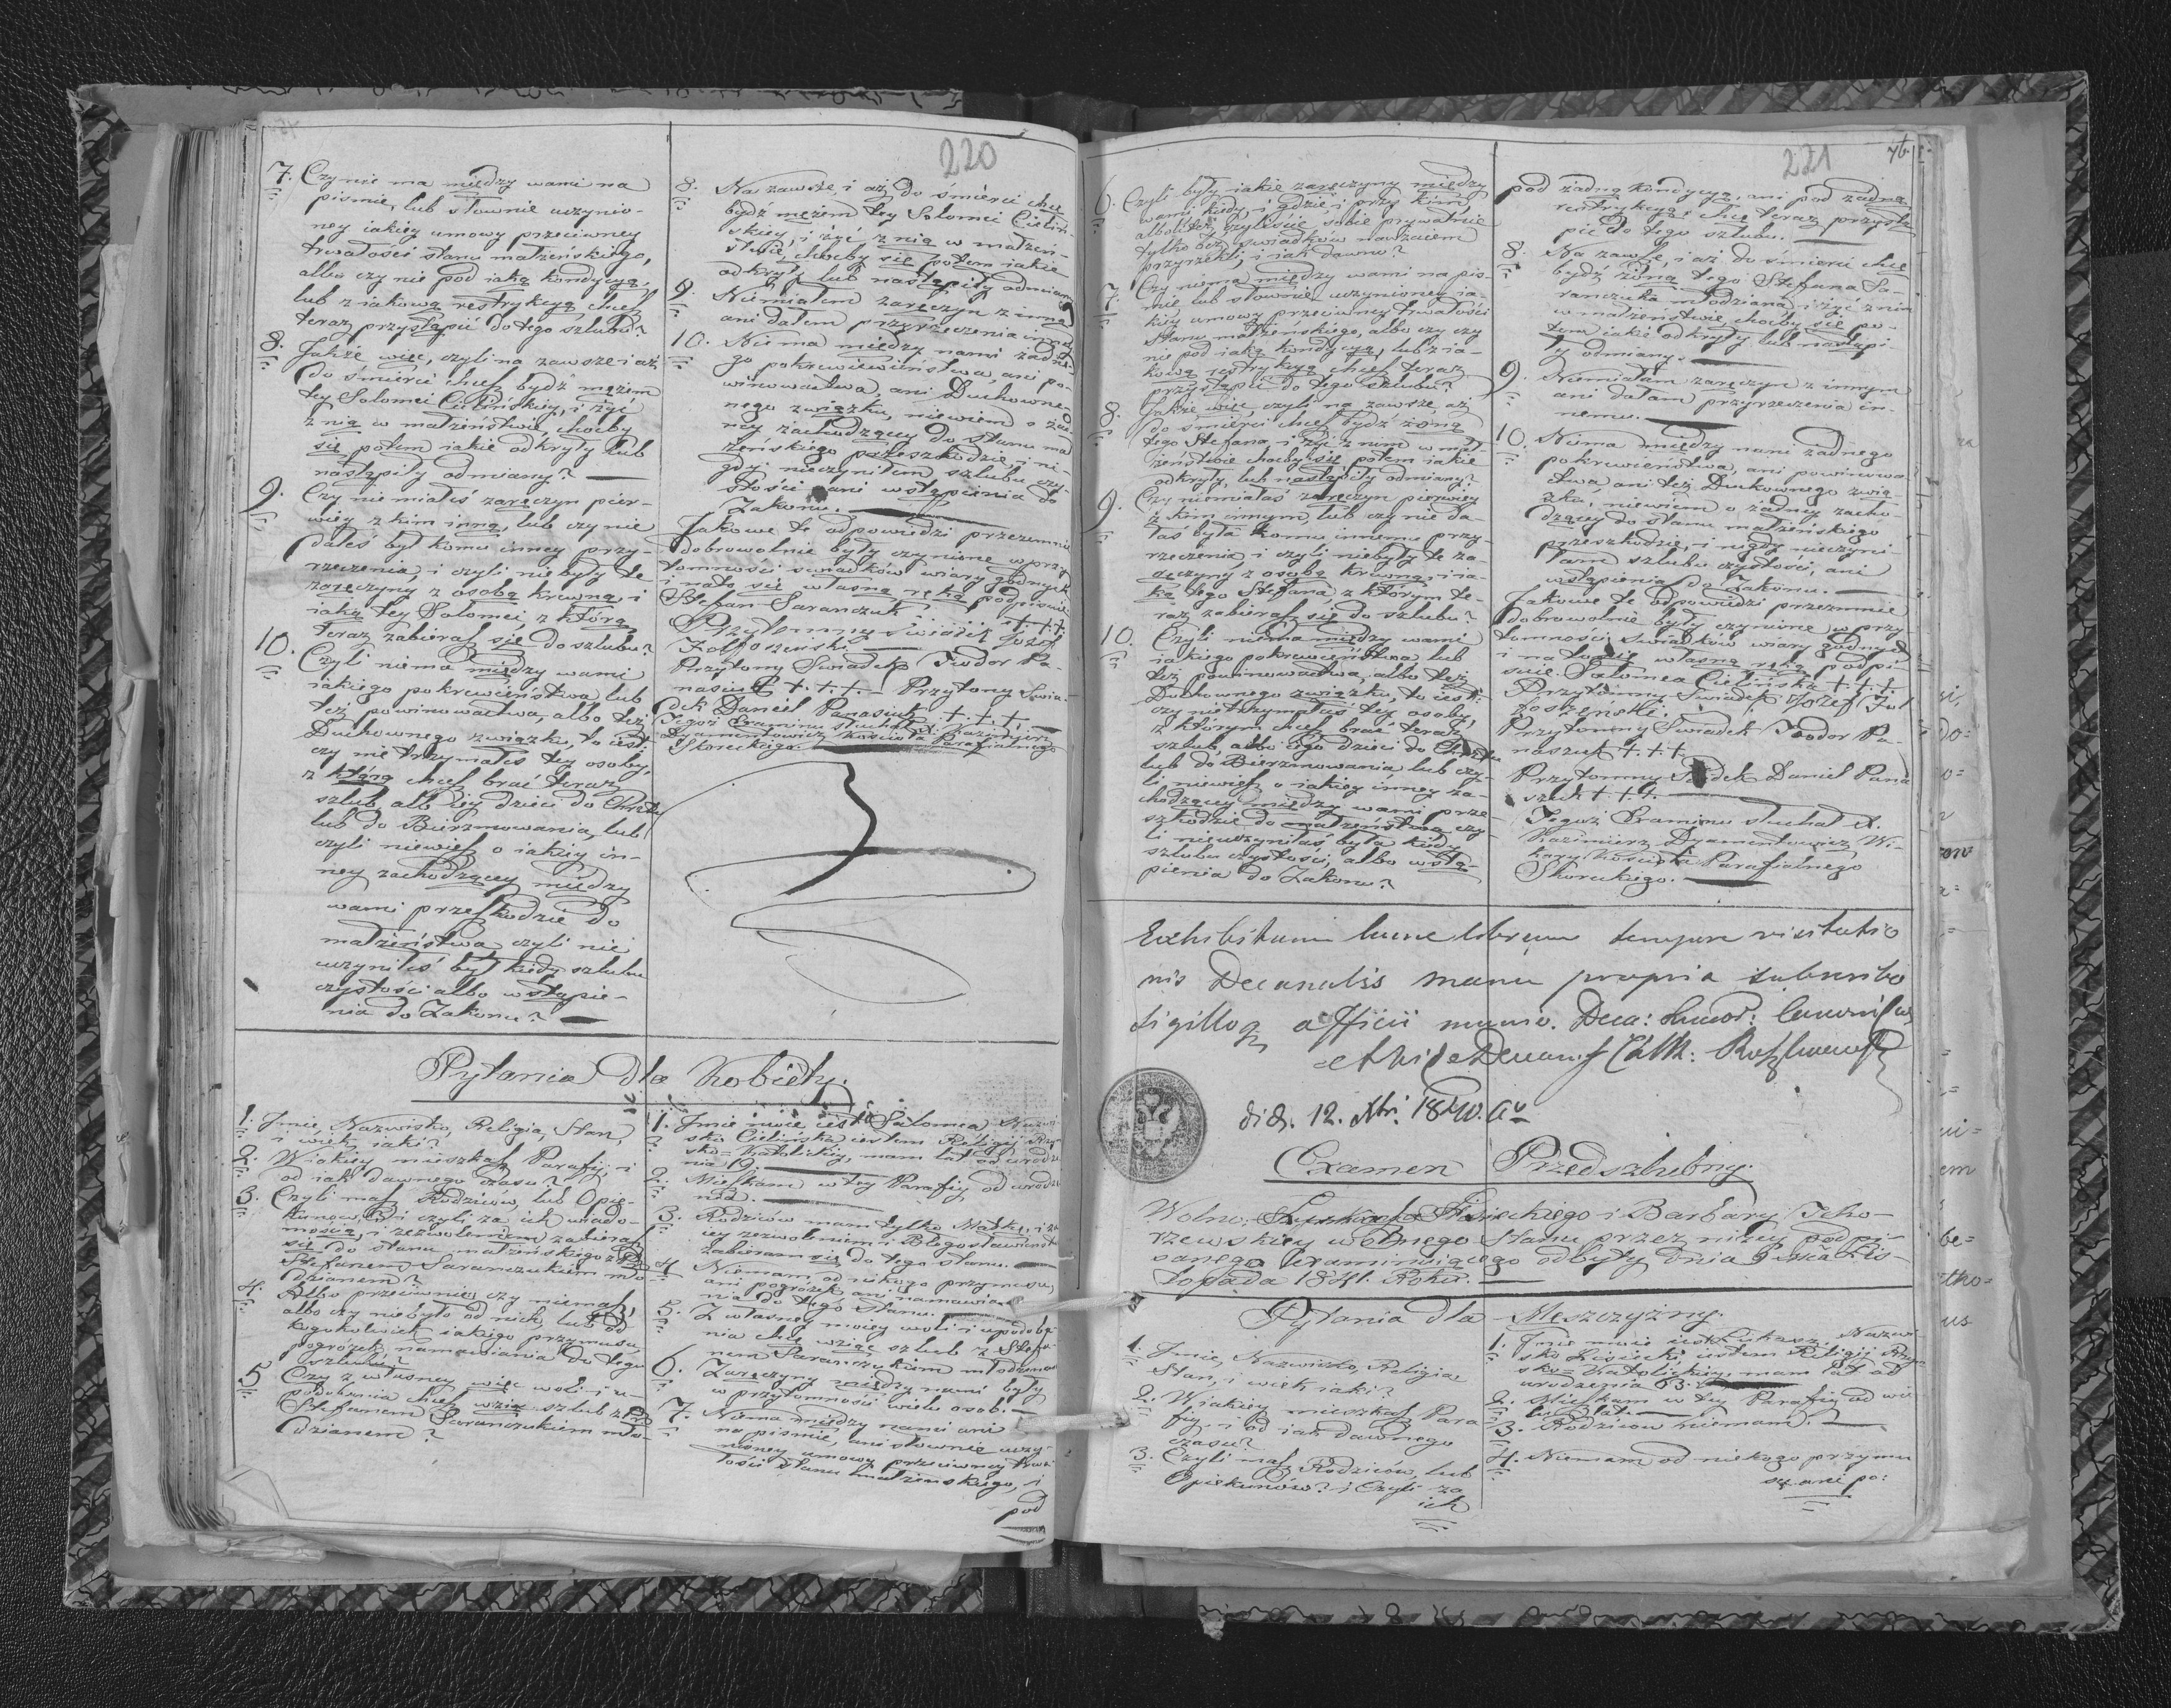 220
7. Czy nie ma między wami na
piśmie, lub słownie uczynio-
ney iakiey umowy przeciwney
trwałości stanu małżenskiego,
albo czy nie pod iaką kondycyą,
lub z iakową restrykcyą chcesz
teraz przystąpić do tego szlubu?
8. Jakże więc, czyli na zawsze i aż
do śmierci chcesz bydź mężem
tey Solomei Cielińskiey, i żyć
z nią w małżeństwie, choćby
się potem iakie odkryły lub
nastąpiły odmiany?
9. Czy nie miałeś zaręczyn pier-
wiey z kim inną, lub czy nie
dałeś był komu inney przy-
rzeczenia, i czyli nie były te
zaręczyny z osobą krewną, i
iaką tey Solomei, z którą
teraz zabierasz się do szlubu?
10. Czyli niema między wami
iakiego pokrewieństwa lub
też powinowactwa, albo też
Duchownego związku, to iest:
czy nie trzymałeś tey osoby,
z którą chcesz brać teraz
szlub, albo iey dzieci do Chrztu
lub do Bierzmowania, lub
czyli niewiesz o iakiey in-
ney zachodzącey między
wami przeszkodzie do
małżeństwa, czyli nie
uczyniłeś był kiedy szlubu
czystości albo wstąpie-
nia do Zakonu?
8. Na zawsze, i aż do śmierci chcę
bydź mężem tey Solomei Cieliń-
skiey, i żyć z nią w małżeń-
stwie, choćby się potem iakie
odkryły lub nastąpiły odmiany
9. Niemiałem zaręczyn z inną
ani dałem przyrzeczenia inney
10. Niema między nami żadne-
go pokrewieństwa, ani po-
winowactwa, ani Duchowne-
nego związku, niewiem o żad-
ney zachodzącey do stanu mał
żeńskiego przeszkodzie, i ni-
gdy nieczyniłem szlubu czy-
stości ani wstąpienia do
Zakonu.
Jakowe te odpowiedzi przezemnie
dobrowolnie były czynione w przy
tomności swiadków wiary godnych
i nato się własną ręką podpisuię
Stefan Saranczuk +.+.+.
Przytomny Swiadek Jozef
Przytomy Swiadek Fiodor Pa-
nasiuk +.+.+. Przytomy Swia-
dek Daniel Panasiuk +.+.+.
Tegoż Examinu słuchał X. Kazimierz
Dyamentowicz Kościoła Parafialnego
Skoreckiego.
Pytania dla Kobiety.
1. Jmie, Nazwisko, Religia, Stan,
i wiek iaki?
2. W iakiey mieszkasz Parafij, i
od iak dawnego czasu?
3. Czyli masz Rodziców, lub Opie-
kunow, i czyli za ich wiado-
mością, i zezwoleniem zabierasz
się do stanu małżeńskiego z
Stefanem Saranczukiem mło-
dzianem?
4. Albo przeciwnie, czy niemasz,
albo czy niebyło od nich, lub od
kogokolwiek iakiego przymusu,
pogróżek, namawiania do tego
szlubu?
5 Czy z własney więc woli i u-
podobania chcesz wziąć szlub z
Stefanem Saranczukiem mło-
dzianem?
1. Jmie moie iest Salomea Nazwi-
sko Cielińska iestem Religij Rzym-
sko-Katolickiey, mam lat od urodze
nia 19.
2. Mieszkam w tey Parafij od urodze
nia.
3. Rodziców mam tylko Matkę, i za
iey zezwoleniem i Błogosławieństw
zabieram się do tego stanu.
4 Niemam od nikogo przymusu,
ani pogróżek, ani namawia-
nia do tego stanu.
5. Z własney moiey woli i upodoba-
nia chcę wziąć szlub z Stefa-
nem Saranczukiem młodzianem
6. Zaręczyny między nami były
w przytomności wielu osob.
7. Niema między nami ani
na piśmie, ani słownie uczy-
nioney umowy przeciwney trwa-
łości stanu małżeńskiego, i
pod
221
76.
6. Czyli były iakie zaręczyny między
wami, kiedy, i gdzie, i przy kim,
albo też czyliście sobie prywatnie
tylko bez swiadków nawzaiem
przyrzekli, i iak dawno?
7. Czy niema między wami na piś-
mie lub słownie uczynioney ia-
kiey umowy przeciwney trwałości
Stanu małżeńskiego, albo czy czy
nie pod iaką kondycyą, lub z ia-
kową restrykcyą chcesz teraz
przystąpić do tego szlubu?
8. Jakże więc, czyli na zawsze, aż
do śmierci chcesz bydź żoną
tego Stefana, i żyć z nim w mał-
żeństwie choćby się potem iakie
odkryły, lub nastąpiły odmiany?
9. Czy niemiałaś zaręczyn pierwiey
z kim innym, lub czy nie da-
łaś była komu innemu przy-
rzeczenia, i czyli niebyły te za-
ręczyny z osobą krewną, i ia-
ką tego Stefana, z którym te-
raz zabierasz się do szlubu?
10. Czyli niema między wami
iakiego pokrewieństwa lub
też powinowactwa, albo też
Duchownego związku, to iest:
czy nietrzymałaś tey osoby,
z którym chcesz brać teraz
szlub, albo iego dzieci do Chrztu
lub do Bierzmowania lub czy-
li niewiesz o iakiey inney za-
chodzącey między wami prze-
szkodzie do małżeństwa czy
li nieuczyniłaś była kiedy
szlubu czystości, albo wstą-
pienia do Zakonu?
pod żadną kondycyą, ani pod żadną
restrykcyą, chcę teraz przystą
pić do tego szlubu.
8. Na zawsze, i aż do śmierci chcę
bydź żoną tego Stefana Sa-
ranczuka młodziana, i żyć z nim
w małżeństwie, choćby się po-
tem iakie odkryły lub nastąpi-
ły odmiany.
9. Niemiałam zaręczyn z innym
ani dałam przyrzeczenia in-
nemu.
10. Niema między nami żadnego
pokrewieństwa, ani powinowa-
ctwa, ani też Duchownego zwią
zku, niewiem o żadney zacho-
dzącey do stanu małżeńskiego
przeszkodzie, i nigdy nieczyni-
łam szlubu czystości, ani
wstąpienia do Zakonu.
Jakowe te odpowiedzi przezemnie
dobrowolnie były czynione w przy
tomności Swiadków wiary godnych
i na to się własną ręką podpi-
suie. Salomea Cielińska +.+.+.
Przytomny Swiadek Jozef
Przytomny Swiadek Fiodor Pa-
naszuk +.+.+.
Przytomny Swiadek Daniel Pana
szuk +.+.+.
Tegoż Examinu słuchał X.
Kazimierz Dyamentowicz Wi-
kary Kościoła Parafialnego
Skoreckiego.
Exhibitum hunc librum tempore visitatio
nis Decanalis manu propria subscribo
sigilloq officii munio.
die 12. 1840. a
Examen Przedszlubny.
Wolno: Łukasza Lisieckiego i Barbary
wolnego Stanu przez niżey podpi-
sanego Examinuiącego odbyty Dnia Lis-
topada 1841. Roku.
Pytania dla Meszczyzny.
1. Jmie, Nazwisko, Religia,
Stan, i wiek iaki?
2. W iakiey mieszkasz Para
fij, i od iak dawnego
czasu?
3. Czyli masz Rodziców, lub
Opiekunów? i Czyli za
ich
1. Jmie moie iest Łukasz, Nazwi-
sko Lisiecki, iestem Religij Rzym-
sko-Katolickiey, mam lat od
urodzenia
2. Mieszkam w tey Parafij od wie
lu lat.
3. Rodziców niemam.
4. Niemam od niekogo przymu
su ani po: